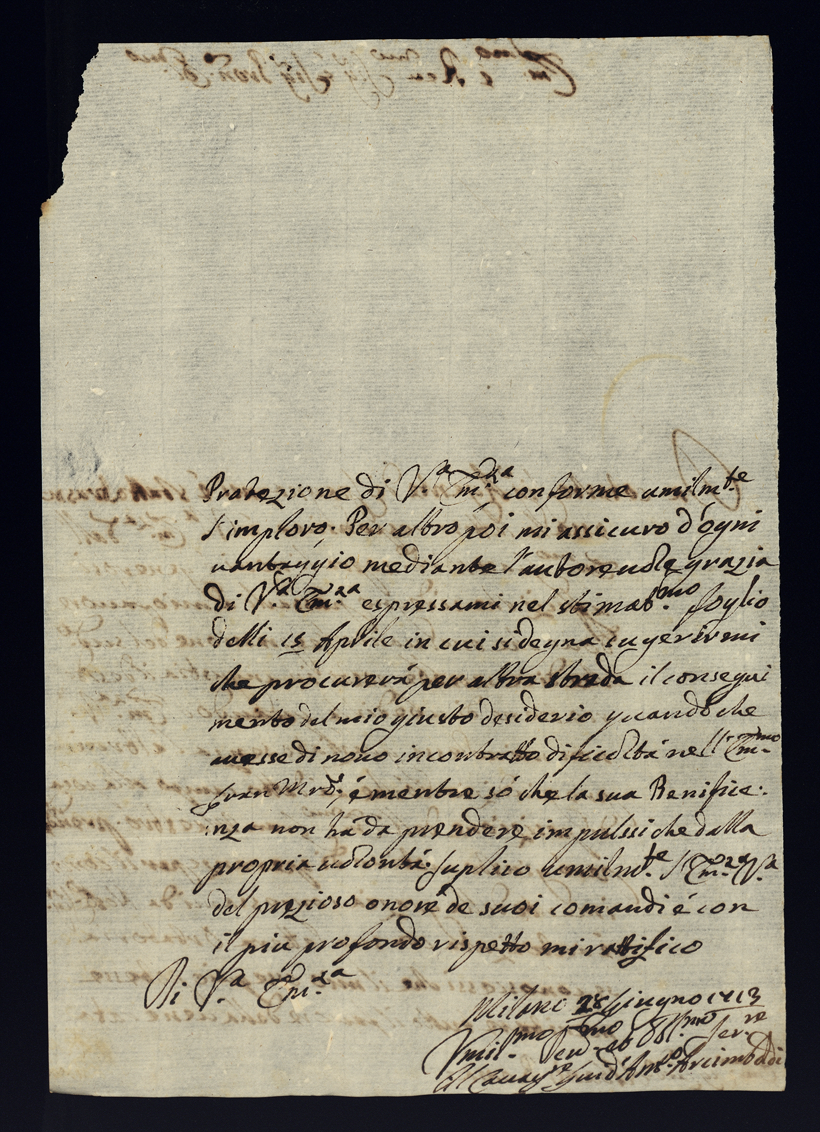 Protezione di V.ra Em.za conforme umilm.te
l'imploro. Per altro poi mi assicuro d'ogni
vantaggio mediante l'autorevole grazia
di V.ra Em.za espressami nel stimat.mo foglio
delli 15 Aprile in cui si degna sugerirmi
che procurerá per altra strada il consegui
mento del mio giusto desiderio quando che
avesse di novo incontratto dificoltá nell'Em.mo
Gran Mr̃o, é mentre só che la sua Benifice:
nza non há da prendere impulssi che dalla
propria volontá. Suplico umilm.te l'Em.za V.ra
del prezioso onore de suoi comandi é con
il piu profondo rispetto mi rattifico
Di V.ra Em.za
Milano 28 Giugno 1713
Vmil.mo Dev.mo ed Obl.mo Ser.re
Il Caua.re Guid'Ant.o Arcimboldi